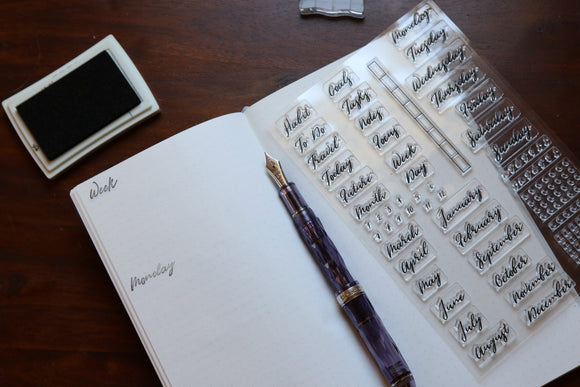 Week
Monday
Habit
To Do
Travel
Today
Future
Month
March
April
May
June
July
August
Goals
Tasks
Notes
Focus
Week
Day
January
February
September
October
November
December
Monday
Tuesday
Wednesday
Thursday
Friday
Saturday
Sunday